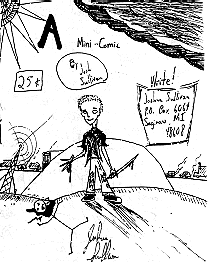 A
Mini-Comic
25¢
By,
Josh
Sullivan
Write!
Joshua Sullivan
P.O. Box 6069
Saginaw, MI
48608
Joshua
Sullivan